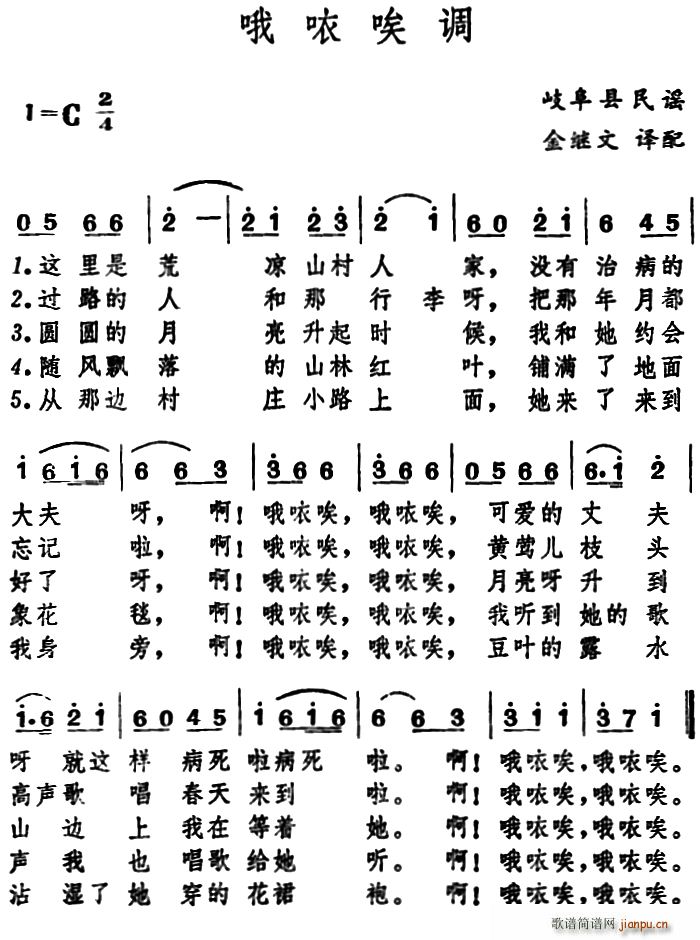 哦哝唉调
1=C 2/4
岐阜县民谣
金继文 译配
0 5 6 6 | 2 — | 2 1 2 3 | 2 1 | 6 0 2 1 | 6 4 5 |
1.这里是荒 凉山村人 家，没有治病的
2.过路的人 和那 行李呀，把那年月都
3.圆圆的月 亮升起时 候，我和她约会
4.随风飘落 的山林红 叶，铺满了地面
5.从那边村 庄小路上 面，她来了来到
1 6 1 6 | 6 6 3 | 3 6 6 | 3 6 6 | 0 5 6 6 | 6. 1 2 |
大夫 呀，啊！哦哝唉，哦哝唉，可爱的丈夫
忘记 啦，啊！哦哝唉，哦哝唉，黄莺儿枝头
好了 呀，啊！哦哝唉，哦哝唉，月亮呀升到
象花 毯，啊！哦哝唉，哦哝唉，我听到她的歌
我身 旁，啊！哦哝唉，哦哝唉，豆叶的露水
1. 6 2 1 | 6 0 4 5 | 1 6 1 6 | 6 6 3 | 3 1 1 | 3 7 1 ‖
呀 就这样 病死啦病死 啦。啊！哦哝唉，哦哝唉。
高声歌 唱 春天来到 啦。啊！哦哝唉，哦哝唉。
山 边上我在等着 她。啊！哦哝唉，哦哝唉。
声我 也 唱歌给她 听。啊！哦哝唉，哦哝唉。
沾 湿了她 穿的花裙 袍。啊！哦哝唉，哦哝唉。
歌谱简谱网
jianpu.cn